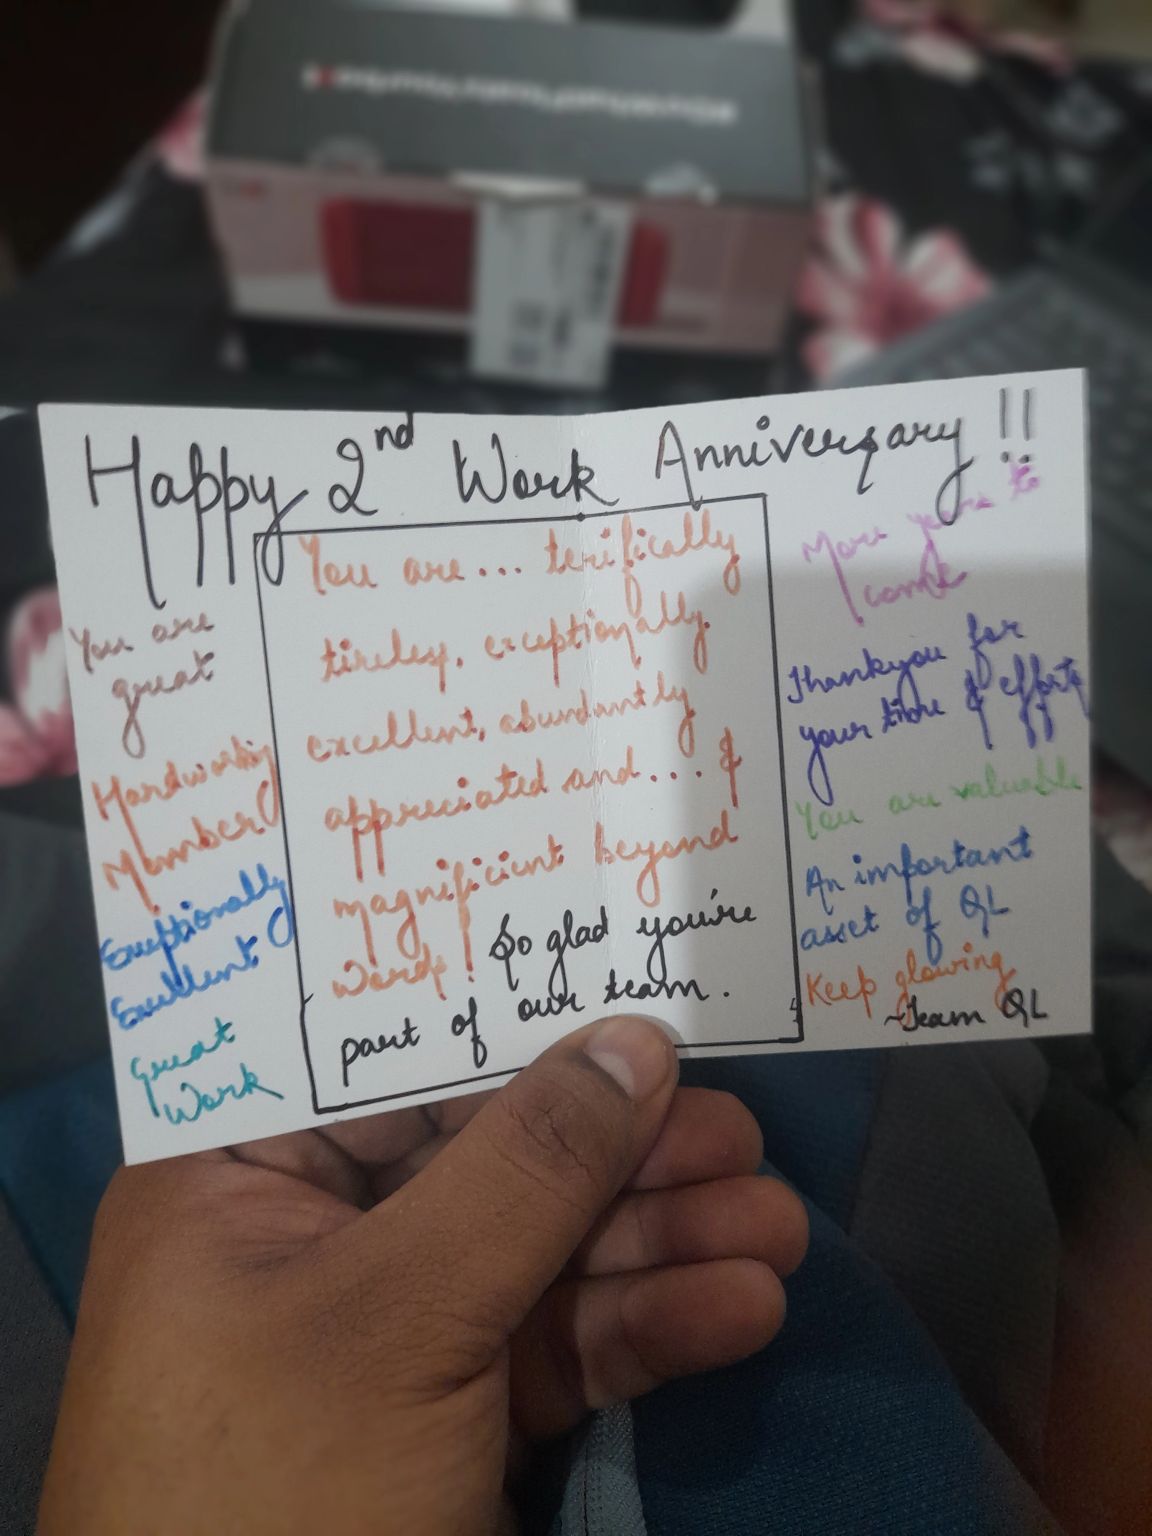 Happy 2nd Work Anniversary !!
You are... terifically
tireless, exceptionally
excellent, abundantly
appreciated and... &
magnificient beyond
Words! So glad you're
part of our team.
You are
great
Hardworking
Member
Exceptionally
Excellent
Great
Work
More years to
come
Thankyou for
your time & efforts
You are valuable
An important
asset of QL
Keep glowing
~Team QL